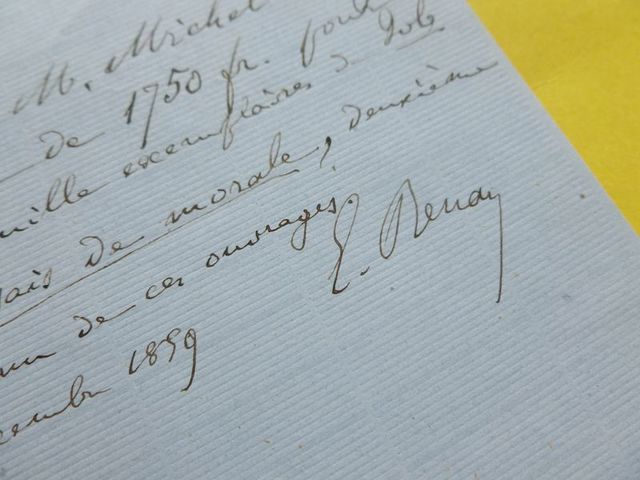 M. Michel
de 1750 fr. pour
mille exemplaires de Job
ais de morale, deuxième
un de ces ouvrages.
E. Renan
cembre 1859